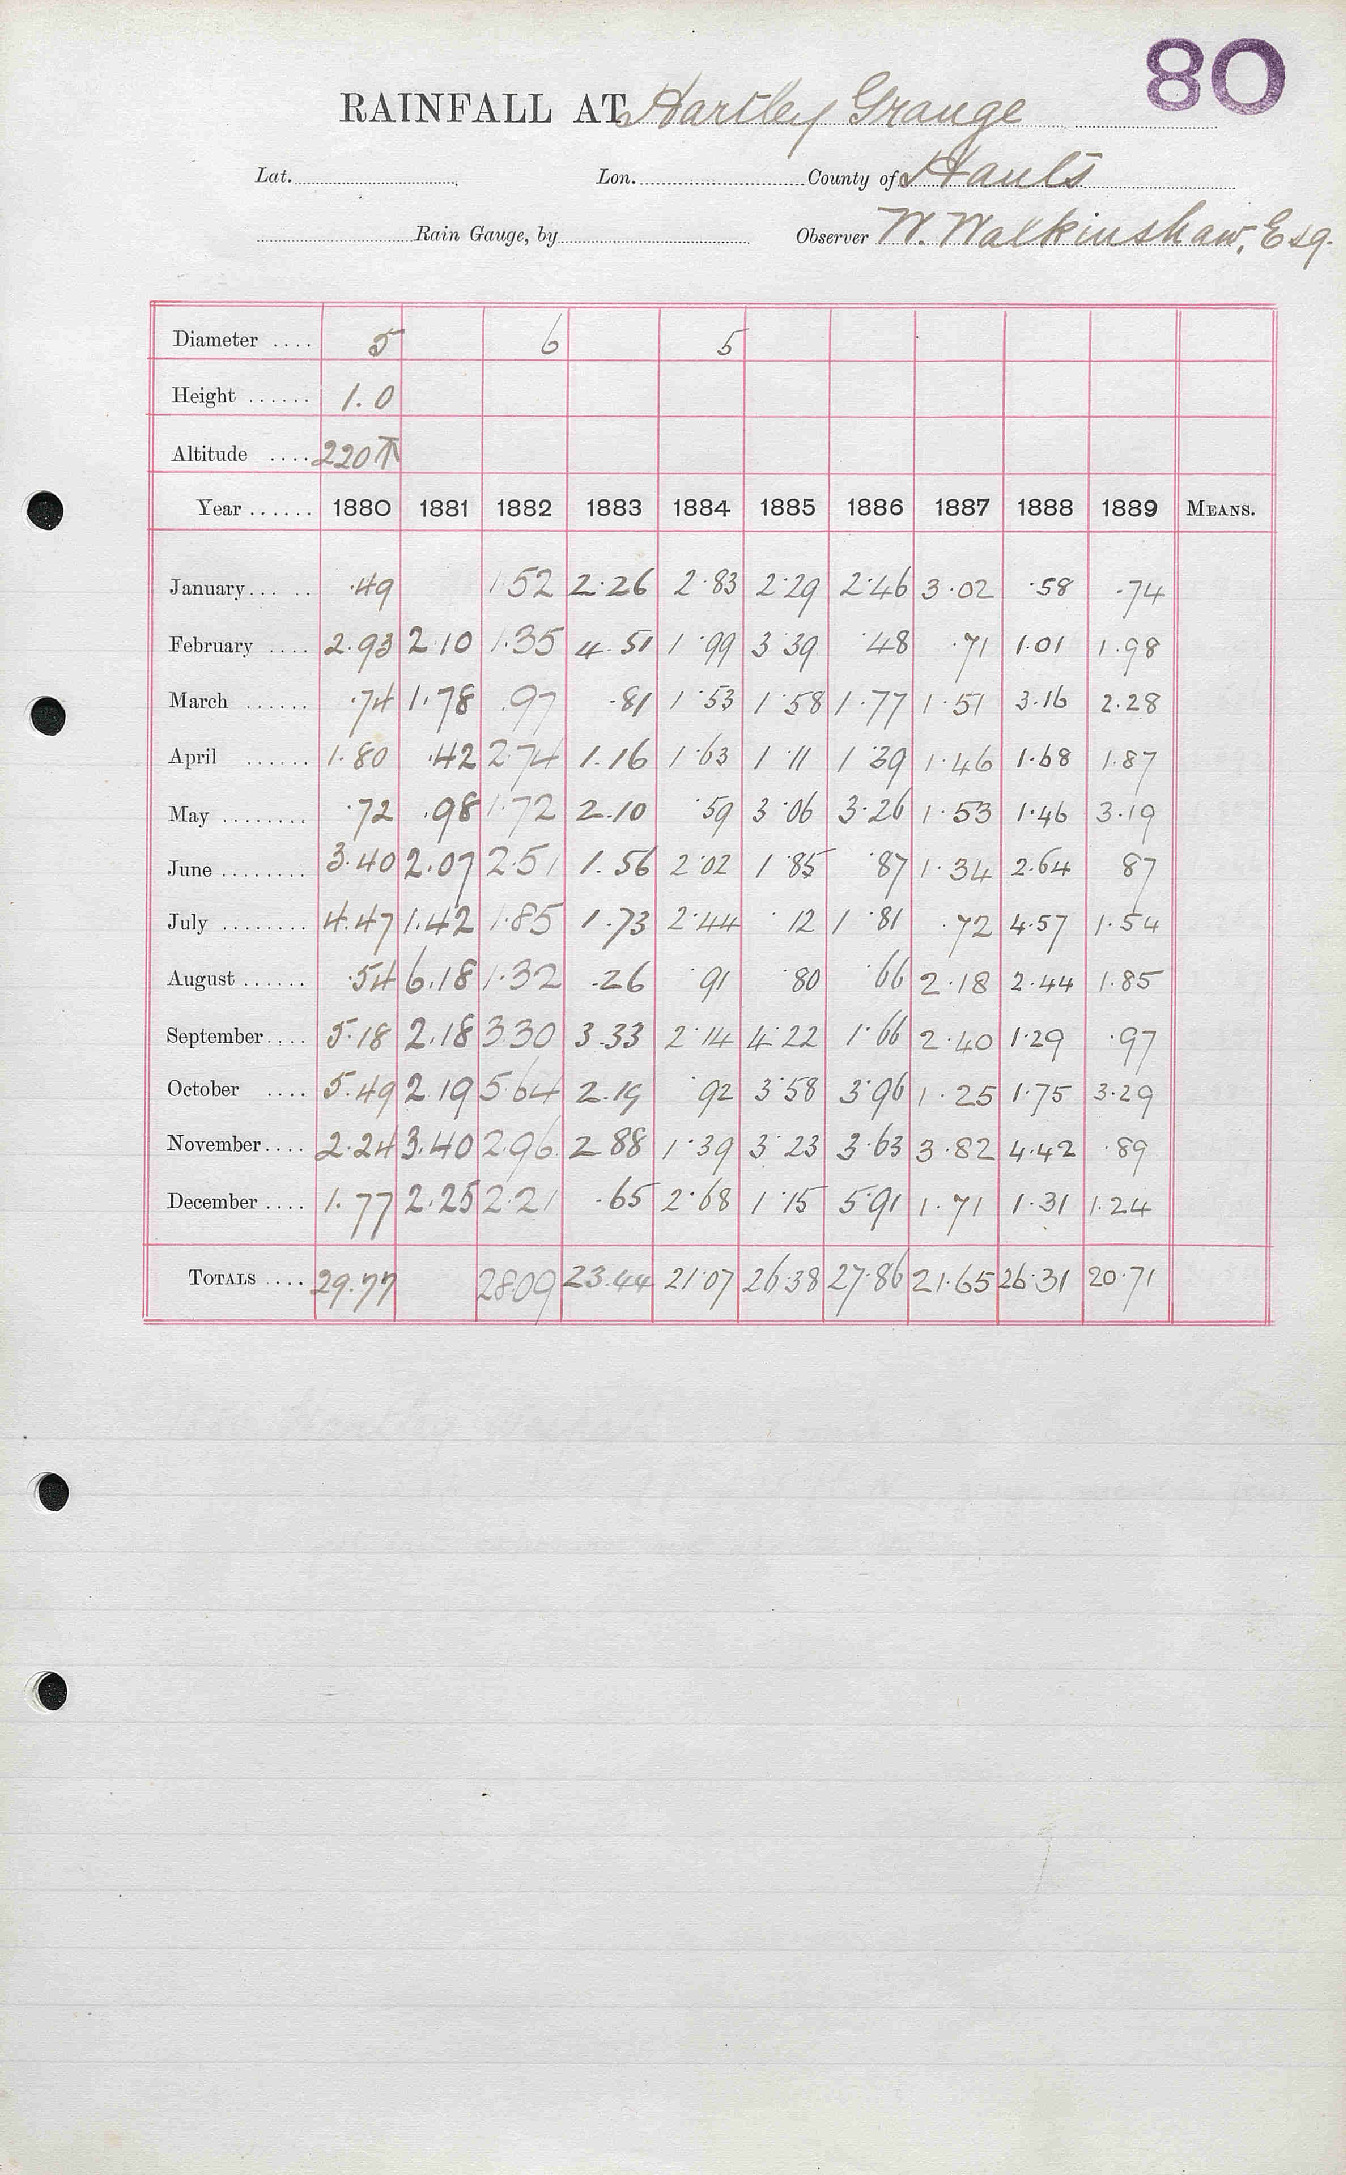 80
RAINFALL AT Hartley Grange
Lat. Lon. County of Hants
Rain Gauge, by Observer W. Walkinshaw, Esq.
Diameter .... 5 6 5
Height ...... 1.0
Altitude .... 220 T
Year ...... 1880 1881 1882 1883 1884 1885 1886 1887 1888 1889 MEANS.
January... .. .49 1.52 2.26 2.83 2.29 2.46 3.02 .58 .74
February .... 2.93 2.10 1.35 4.51 1.99 3.39 .48 .71 1.01 1.98
March ...... .74 1.78 .97 .81 1.53 1.58 1.77 1.51 3.16 2.28
April ...... 1.80 .42 2.74 1.16 1.63 1.11 1.39 1.46 1.68 1.87
May ........ .72 .98 1.72 2.10 .59 3.06 3.26 1.53 1.46 3.19
June ........ 3.40 2.07 2.51 1.56 2.02 1.85 .87 1.34 2.64 87
July ........ 4.47 1.42 1.85 1.73 2.44 .12 1.81 .72 4.57 1.54
August ...... .54 6.18 1.32 .26 .91 .80 .66 2.18 2.44 1.85
September.... 5.18 2.18 3.30 3.33 2.14 4.22 1.66 2.40 1.29 .97
October .... 5.49 2.19 5.64 2.19 .92 3.58 3.96 1.25 1.75 3.29
November.... 2.24 3.40 2.96 2.88 1.39 3.23 3.63 3.82 4.42 .89
December .... 1.77 2.25 2.21 .65 2.68 1.15 5.91 1.71 1.31 1.24
TOTALS .... 29.77 28.09 23.44 21.07 26.38 27.86 21.65 26.31 20.71